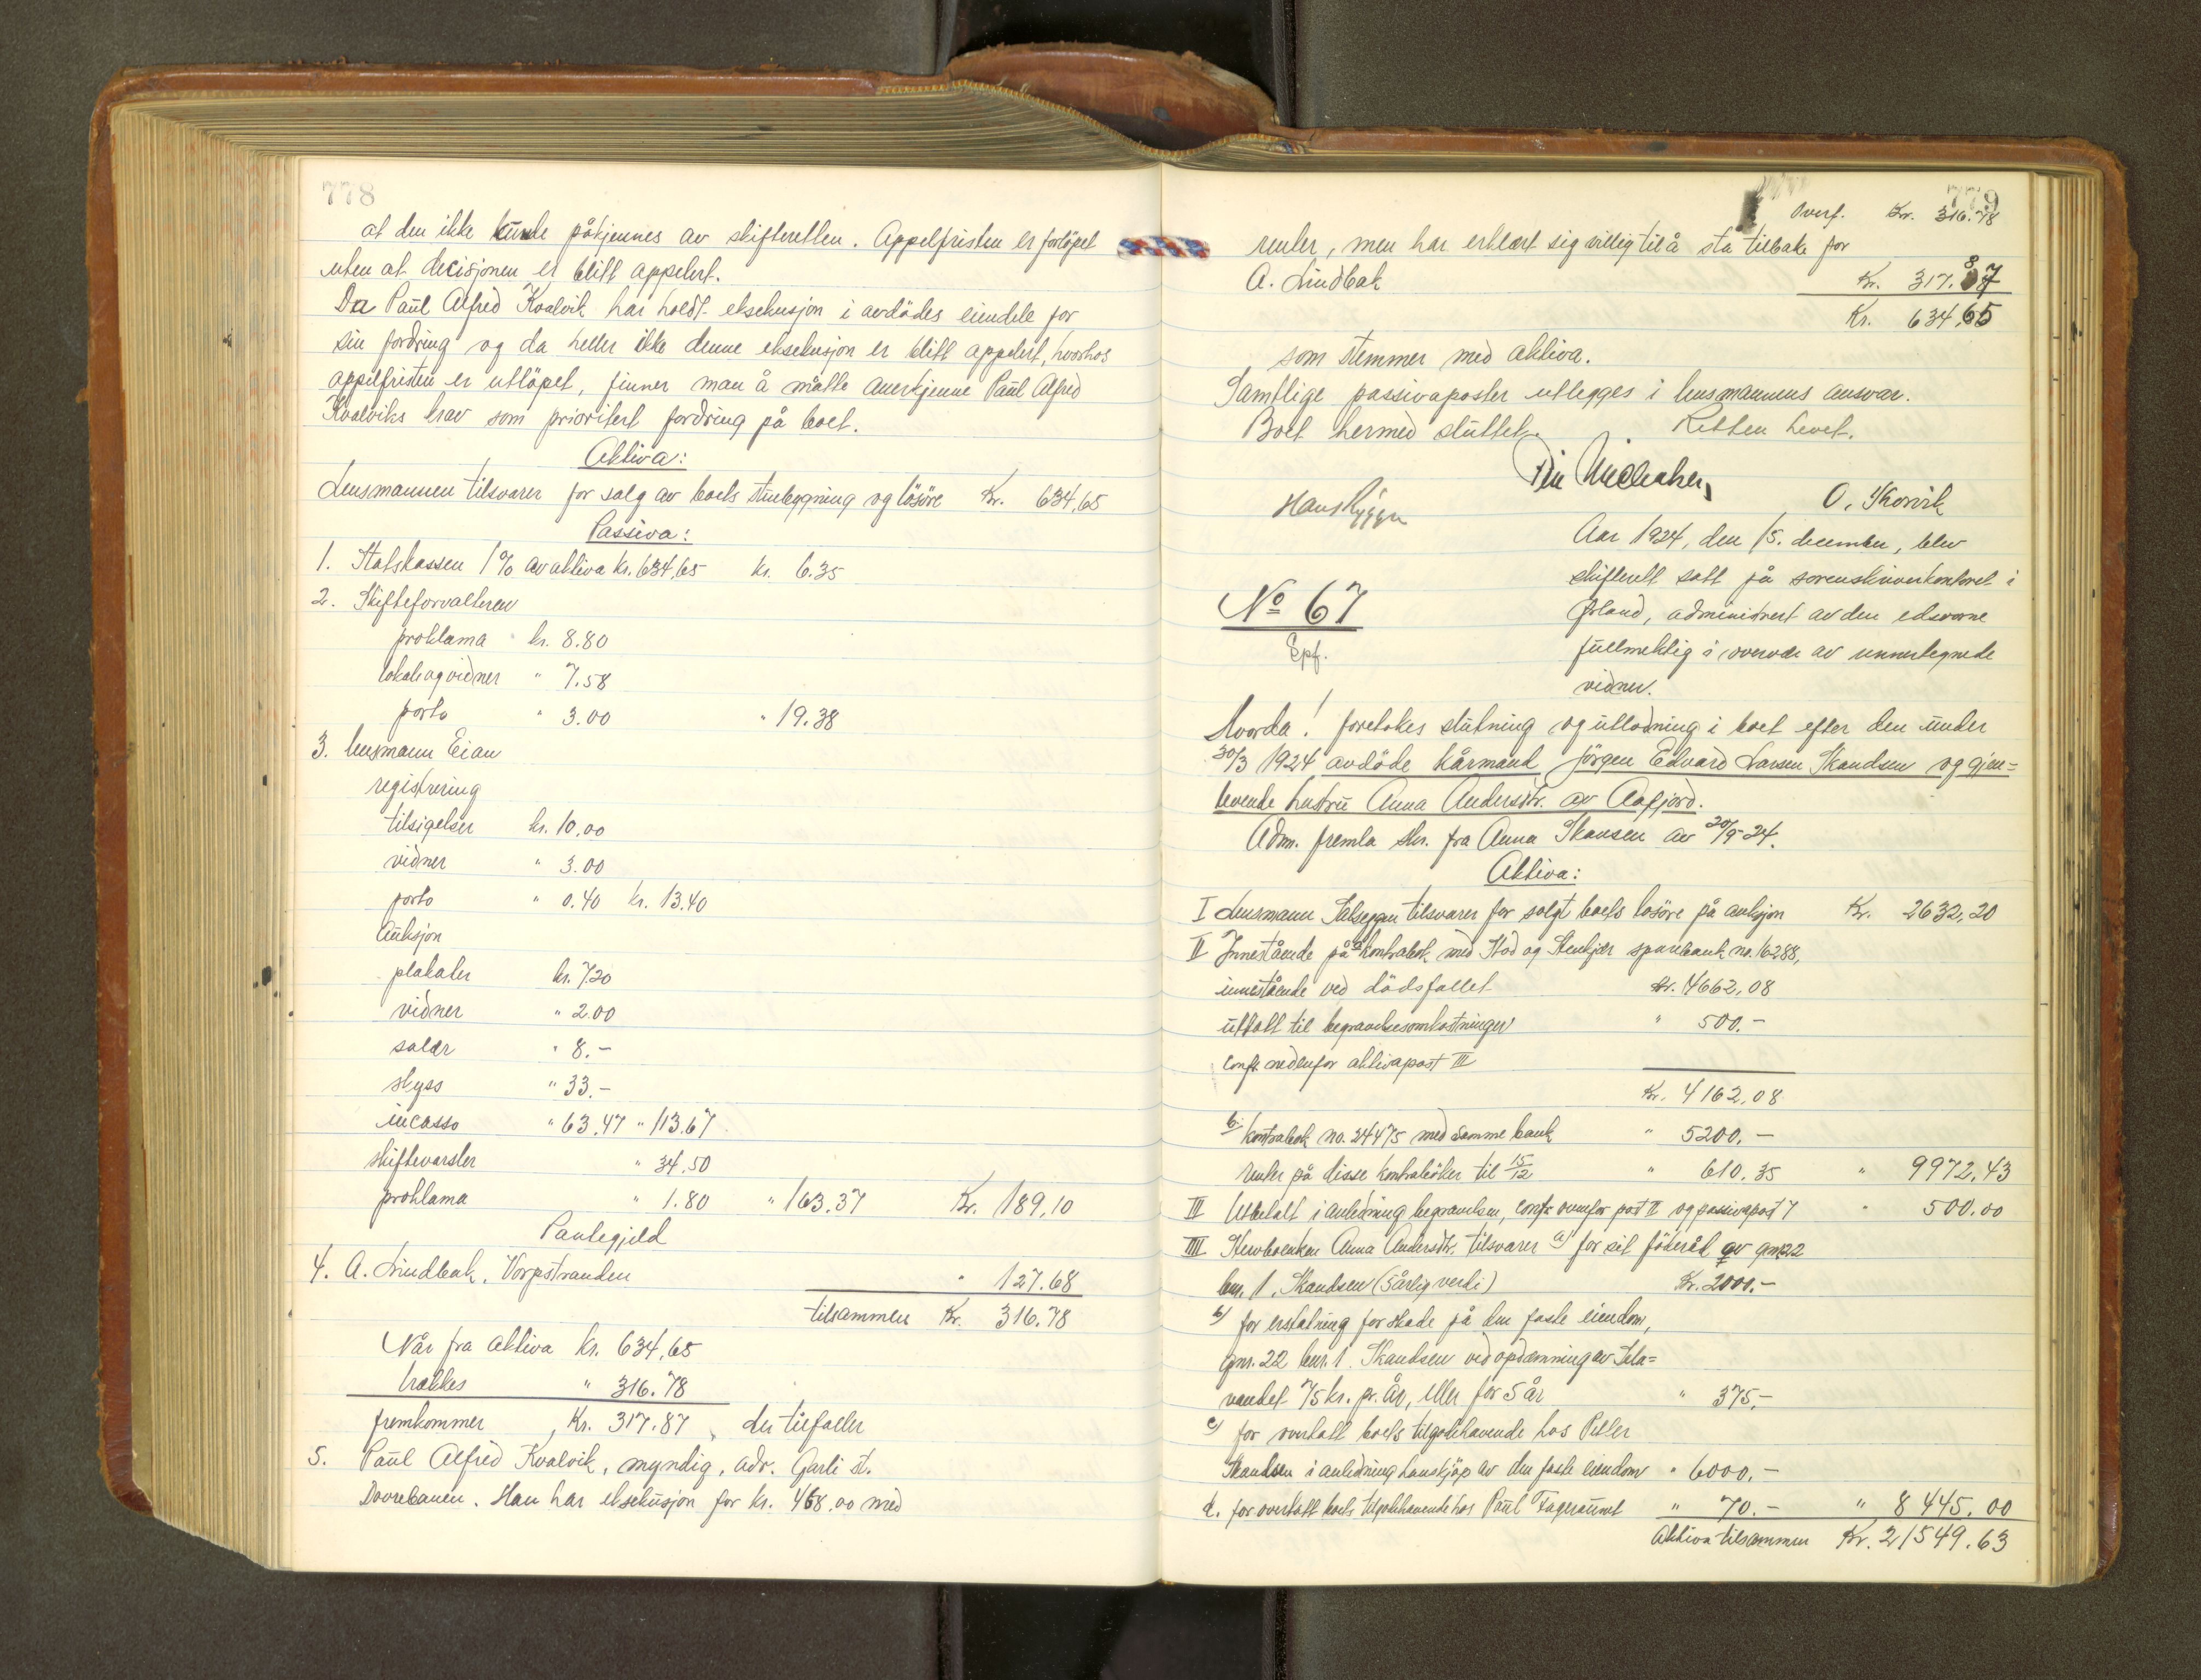 778
at den ikke kunde påkjennes av skifteretten. Appelfristen er forløpet
uten at decisjonen er blitt appelert.
Da Paul Alfred Kvalvik har holdt eksekusjon i avdødes eiendele for
sin fordring og da heller ikke denne eksekusjon er blitt appelert, hvorhos
appelfristen er utløpet, finner man å måtte anerkjenne Paul Alfred
Kvalviks krav som prioritert fordring på boet.
Aktiva:
Lensmannen tilsvarer for salg av boets stuebygning og løsøre Kr. 634,65
Passiva:
1. Statskassen 1% av aktiva kr. 634,65 kr. 6.35
2. Skifteforvalteren
proklama kr. 8.80
lokale og vidner " 7.58
porto " 3.00 " 19.38
3. lensmann Eian
registrering
tilsigelser kr. 10.00
vidner " 3.00
porto " 0.40 kr. 13.40
Auksjon
plakater kr. 7.20
vidner " 2.00
salær " 8.-
skyss " 33.-
incasso " 63.47 " 113.67
skiftevarsler " 34.50
proklama " 1.80 " 163.37 Kr. 189,10
Pantegjeld
4. A. Lindbak, Vorpstranden " 127.68
tilsammen Kr. 316.78
Når fra aktiva kr. 634,65
trækkes " 316.78
fremkommer Kr. 317.87, der tilfaller
5. Paul Alfred Kvalvik, myndig, adr. Garli st.
Dovrebanen. Han har eksekusjon for kr. 468.00 med
779
Overf. Kr. 316.78
renter, men har erklært sig villig til å stå tilbake for
A. Lindbak Kr. 317.87
Kr. 634,65
som stemmer med aktiva.
Samtlige passivaposter utlegges i lensmannens ansvar.
Boet hermed sluttet. Retten hevet.
Hans Rygge
O. Skorvik
Aar 1924, den 15. december, blev
skifterett satt på sorenskriverkontoret i
Ørland, administrert av den edsvorne
fullmektig i overvær av unnertegnede
vidner.
No 67
Epf.
Hvorda! foretokes slutning og utlodning i boet efter den under
30/3 1924 avdøde kårmand Jørgen Edvard Larsen Skandsen og gjen=
levende hustru Anna Andersdtr. av Aafjord.
Adm. fremla skr. fra Anna Skansen av 20/9-24.
Aktiva:
I Lensmann Selseggen tilsvarer for solgt boets løsøre på auksjon Kr. 2632,20
II Innestående på a kontrabok med Stod og Stenkjær sparebank no. 16288,
innestående ved dødsfallet kr. 4662,08
uttatt til begravelsesomkostninger " 500.-
confr. nedenfor aktivapost III
Kr. 4162,08
b. kontrabok no. 24475 med samme bank " 5200.-
renter på disse kontrabøker til 15/12 " 610.35 " 9972.43
III Utbetalt i anledning begravelsen, confr. ovenfor post II og passivapost 7 " 500.00
IIII Stervboenken Anna Andersdtr. tilsvarer a) for sit føderåd av gnr 22
bnr. 1, Skandsen (5 årlig verdi) Kr. 2000.-
b) for erstatning for skade på den faste eiendom,
gnr. 22 bnr. 1. Skandsen ved opdemning av Sela=
vandet 75 kr. pr. År, eller for 5 år " 375,-
c) for overtatt boets tilgodehavende hos Petter
Skandsen i anledning hans kjøp av den faste eiendom " 6000.-
d. for overtatt boets tilgodehavende hos Paul Fageraunet " 70.- " 8445.00
Aktiva tilsammen Kr. 21549.63